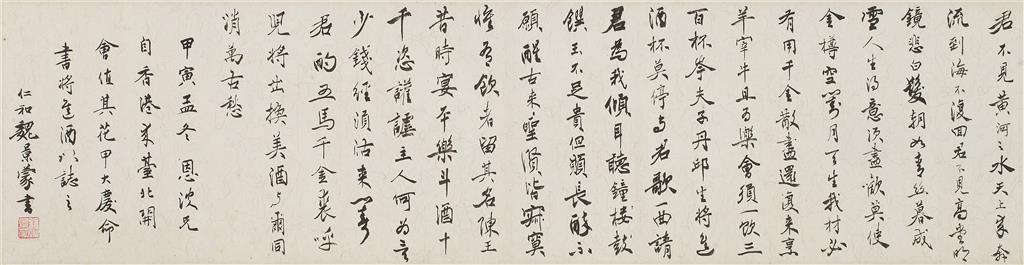 君不見黃河之水天上來奔
流到海不復回君不見高堂明
鏡悲白髮朝如青絲暮成
雪人生得意須盡歡莫使
金樽空對月天生我材必
有用千金散盡還復來烹
羊宰牛且為樂會須一飲三
百杯岑夫子丹邱生將進
酒杯莫停与君歌一曲請
君為我傾耳聽鐘樓鼓
饌玉不足貴但願長醉不
願醒古來聖賢皆寂寞
惟有飲者留其名陳王
昔時宴平樂斗酒十
千恣讙謔主人何為言
少錢徑須沽來對
君酌五馬千金裘呼
兒將出換美酒与爾同
消萬古愁
甲寅孟冬恩沈兄
自香港來臺北開
會值其花甲大慶命
書將進酒以誌之
仁和魏景蒙書